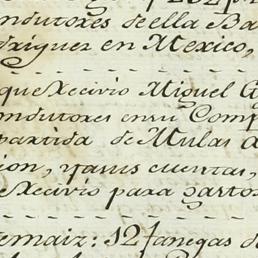 ndutores de ella Ba
driguez en Mexico,
que Recivio Miguel
ndutores en su Comp
partida de Mulas
cion, y a sus cuentas,
e Recivio para gastos
de maiz: 12 fanegas d